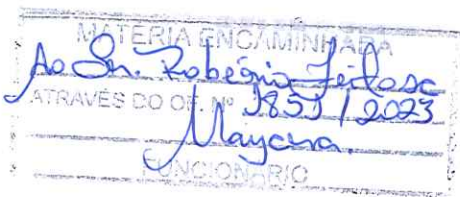 MATÉRIA ENCAMINHADA
Ao Sr. Robério
ATRAVÉS DO OF. Nº 1853 / 2023
Mayara.
FUNCIONÁRIO